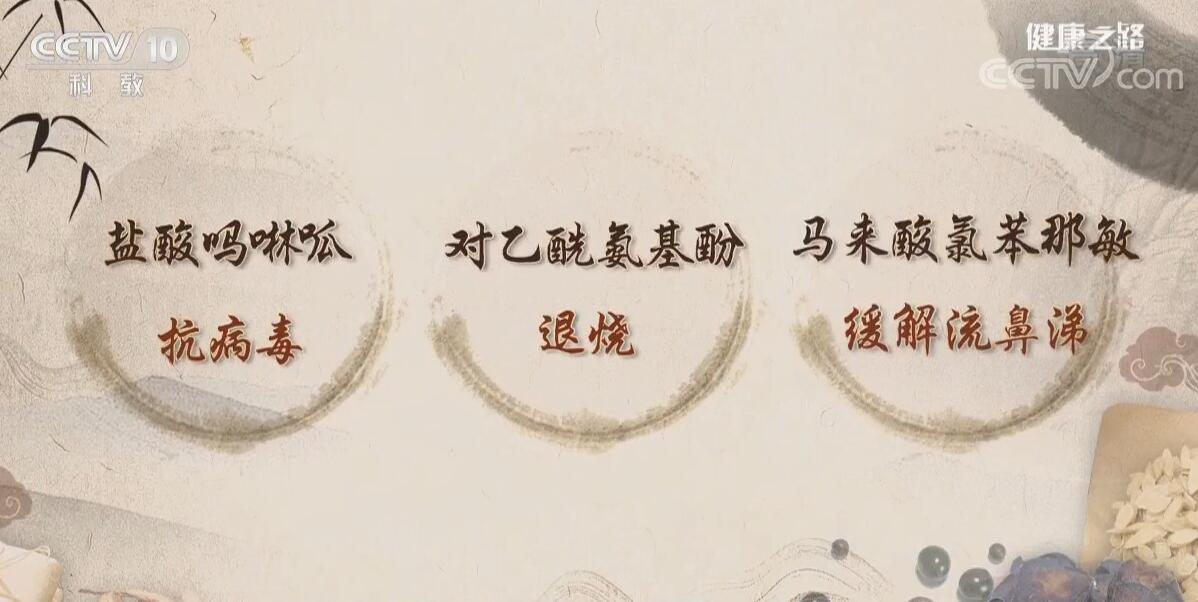 CCTV 10
科教
健康之路
CCTV.com
盐酸吗啉呱
抗病毒
对乙酰氨基酚
退烧
马来酸氯苯那敏
缓解流鼻涕